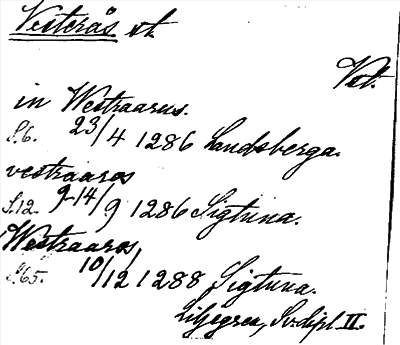 Vesterås st.
Vstl.
in Westraarus.
S.6. 23/4 1286 Landsberga.
vestraaros
S.12. 9-14/9 1286 Sigtuna.
Westraaros
S.65. 10/12 1288 Sigtuna.
Liljegren, Sv. dipl. II.